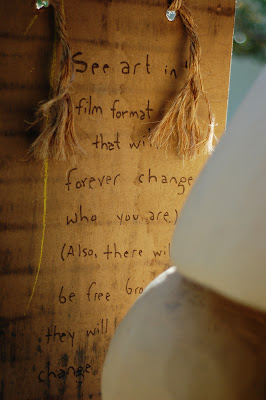 See art in
film format
that
forever change
who you are.)
(Also, there
be free
they will
change